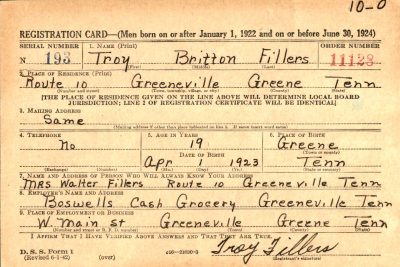 10-0
REGISTRATION CARD—(Men born on or after January 1, 1922 and on or before June 30, 1924)
SERIAL NUMBER 1. NAME (Print) ORDER NUMBER
N 193 Troy Britton Fillers 11128
(First) (Middle) (Last)
2. PLACE OF RESIDENCE (Print)
Route 10 Greeneville Greene Tenn
(Number and street) (Town, township, village, or city) (County) (State)
[THE PLACE OF RESIDENCE GIVEN ON THE LINE ABOVE WILL DETERMINE LOCAL BOARD
JURISDICTION; LINE 2 OF REGISTRATION CERTIFICATE WILL BE IDENTICAL]
3. MAILING ADDRESS
Same
[Mailing address if other than place indicated on line 2. If same insert word same]
4. TELEPHONE 5. AGE IN YEARS 6. PLACE OF BIRTH
No 19 Greene
DATE OF BIRTH (Town or county)
Apr 1 1923 Tenn
(Exchange) (Number) (Mo.) (Day) (Yr.) (State or country)
7. NAME AND ADDRESS OF PERSON WHO WILL ALWAYS KNOW YOUR ADDRESS
Mrs Walter Fillers Route 10 Greeneville Tenn
8. EMPLOYER'S NAME AND ADDRESS
Boswells Cash Grocery Greeneville Tenn
9. PLACE OF EMPLOYMENT OR BUSINESS
W. Main St Greeneville Greene Tenn
(Number and street or R. F. D. number) (Town) (County) (State)
I AFFIRM THAT I HAVE VERIFIED ABOVE ANSWERS AND THAT THEY ARE TRUE.
Troy Fillers
D. S. S. Form 1
(Revised 6-9-42) (over) (Registrant's signature)